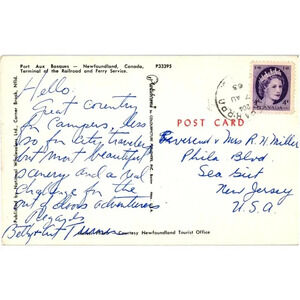 Port Aux Basques — Newfoundland, Canada,
Terminal of the Railroad and Ferry Service.
P33295
Hello:
Great country
for campers, less
so for city travelers
but most beautiful
scenery and a real
challenge for the
out of doors adventurers
Regards
Betty + Art
Courtesy Newfoundland Tourist Office
POST CARD
CANADA
Reverend & Mrs R. H. Miller
Phila Blvd.
Sea Girt
New Jersey
U.S.A.